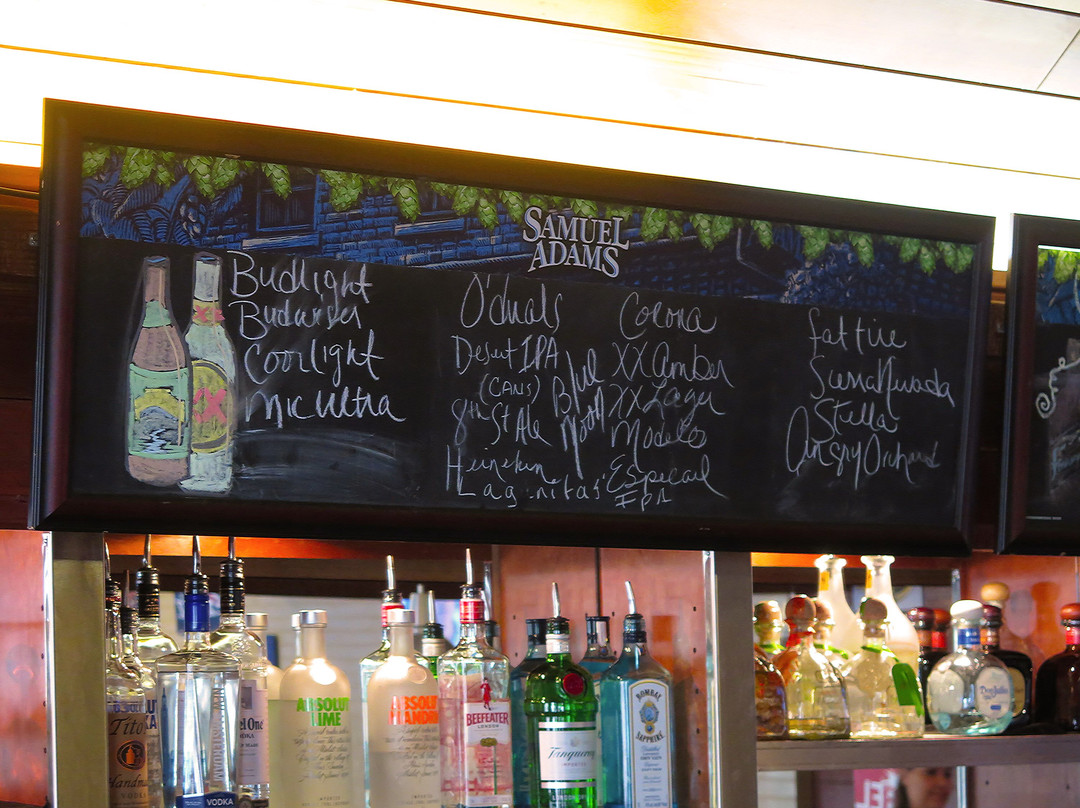 SAMUEL
ADAMS
Budlight
Budwiser
Coorlight
Mic Ultra
O'duals
Desert IPA
(CANS)
8th St Ale
Blue
Moon
Heineken
Lagunitas
Corona
XX Amber
XX Lager
Modelo
Especail
IPA
fat tire
Sierra Nevada
Stella
Angry Orchard
XX
Tito's
Handmade
VODKA
VODKA
el One
ABSOLUT
LIME
ABSOLUT
MANDRIN
BEEFEATER
LONDON
Tanqueray
BOMBAY
SAPPHIRE
Don Julio